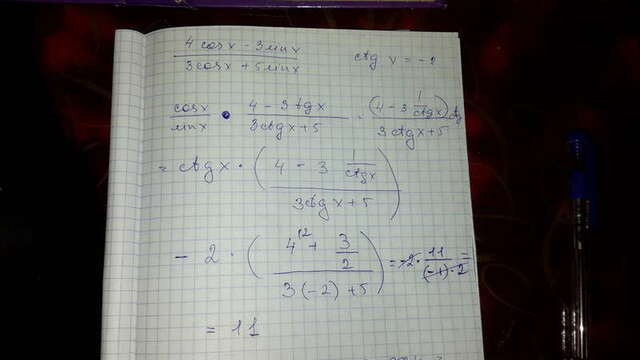 4 cosx - 3 sinx / 3 cosx + 5 sinx    ctg x = -2
cosx / sinx • 4 - 3 tgx / 3ctgx + 5 · (4 - 3 1/ctgx) ctg / 3ctgx + 5
= ctgx · ( 4 - 3 1/ctgx / 3ctgx + 5 )
- 2 · ( 4^(2 + 3/2 / 3(-2) + 5 ) = -2 · 11 / (-1) · 2 =
= 11